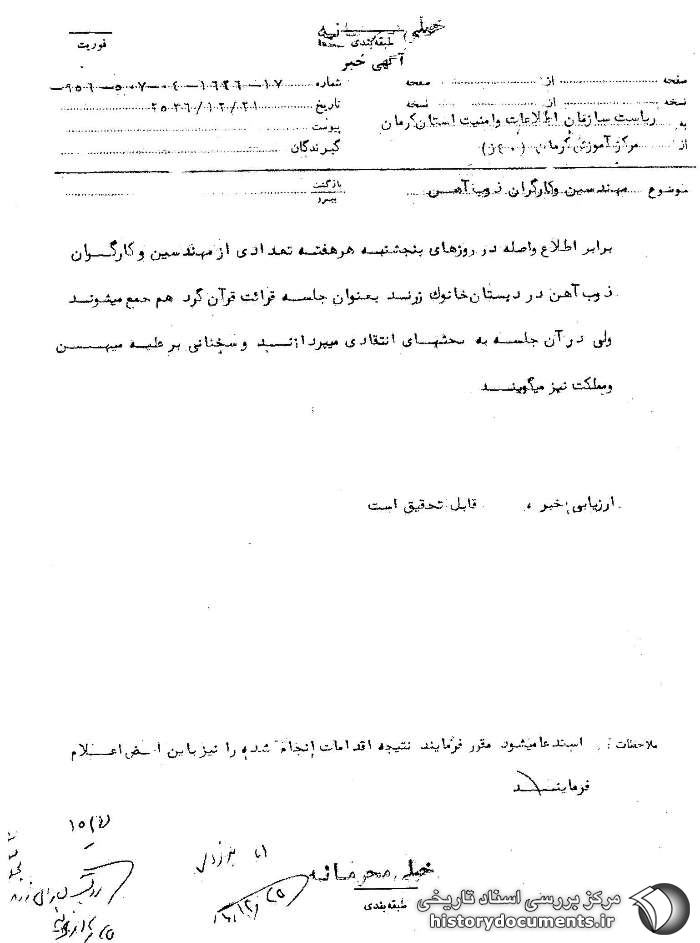 خیلی محرمانه
فوریت
طبقه‌بندی
آگهی خبر
صفحه از صفحه شماره ۱۷-۱۶۲۶-۰۴-۵۰۷-۹۵۶-
نسخه از نسخه تاریخ ۲۵۳۶/۱۲/۲۱
به ریاست سازمان اطلاعات وامنیت استان کرمان پیوست
از مرکز آموزش کرمان گیرندگان
موضوع مهندسین وکارگران ذوب آهن بازگشت پیرو
برابر اطلاع واصله در روزهای پنجشنبه هرهفته تعدادی از مهندسین و کارگران
ذوب آهن در دبستان خانوک زرند بعنوان جلسه قرائت قرآن گرد هم جمع میشوند
ولی در آن جلسه به بحثهای انتقادی میپردازند و سخنانی بر علیه میهن
ومملکت نیز میگویند
ارزیابی خبر ، قابل تحقیق است
ملاحظات : استدعا میشود مقرر فرمایند نتیجه اقدامات انجام شده را نیز باین اعلام
فرمایند
خیلی محرمانه
طبقه بندی
مرکز بررسی اسناد تاریخی
historydocuments.ir